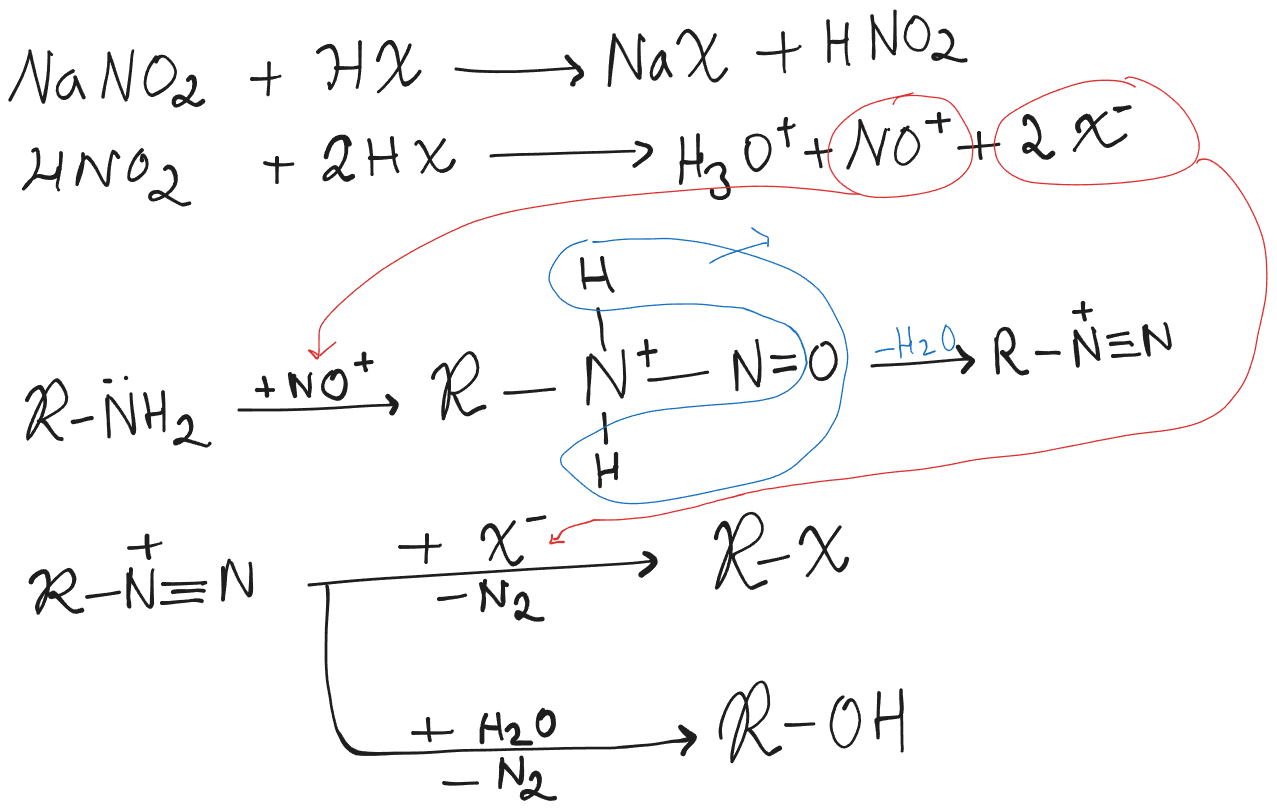 NaNO₂ + HX ⟶ NaX + HNO₂
HNO₂ + 2HX ⟶ H₃O⁺ + NO⁺ + 2X⁻
H
R-N̈H₂ +NO⁺ ⟶ R-N⁺-N=O -H₂O ⟶ R-N⁺≡N
H
R-N⁺≡N +X⁻ -N₂ ⟶ R-X
+H₂O -N₂ ⟶ R-OH